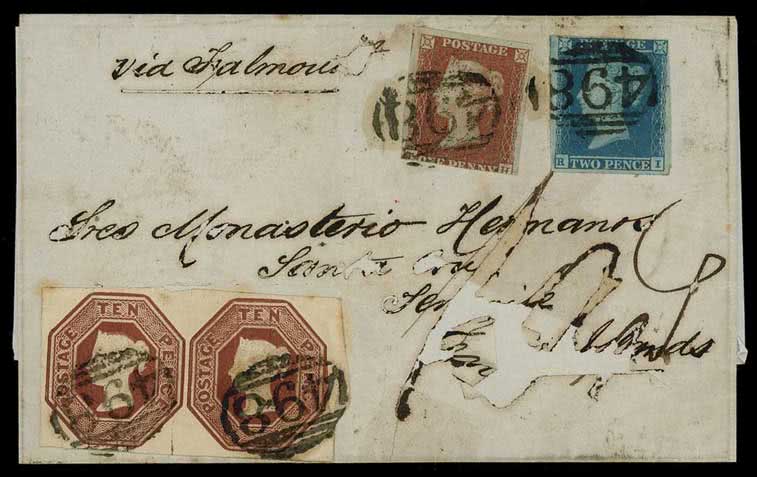 via Falmouth
POSTAGE
ONE PENNY H
POSTAGE
R TWO PENCE I
498
498
Sres Monasterio Hermanos
Santa Cruz
Islands
POSTAGE TEN PENCE
POSTAGE TEN PENCE
498
498